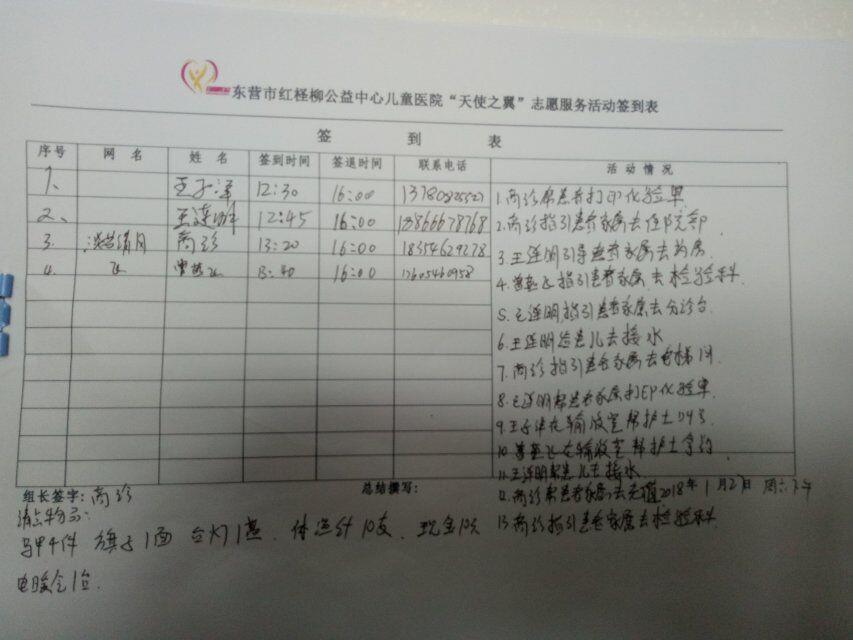 东营市红柽柳公益中心儿童医院“天使之翼”志愿服务活动签到表
签 到 表
序号 网 名 姓 名 签到时间 签退时间 联系电话 活 动 情 况
1、 12:30 16:00
2、 王连明 12:45 16:00 6678768
3. 商珍 13:20 16:00 18354629278
4. 飞 13:40 16:00 13605460958
1.商珍帮患者打印化验单
2.商珍指引患者家属去住院部
3.王连明引导患者家属去药房
4. 指引患者家属去检验科.
5.王连明指引患者家属去分诊台.
6.王连明给患儿去接水
7.商珍指引患者家属去电梯间
8.王连明帮患者家属打印化验单
9.王子 在输液室帮护士叫号
10. 在输液室帮护士
11.王连明帮患儿去接水
12.商珍帮患者家属去充值
13.商珍指引患者家属去检验科
组长签字:商珍 总结撰写: 2018年1月27日 周六下午
清点物品:
马甲4件 旗子1面 台灯1盏. 体温计10支. 现金10元
电暖 1台.